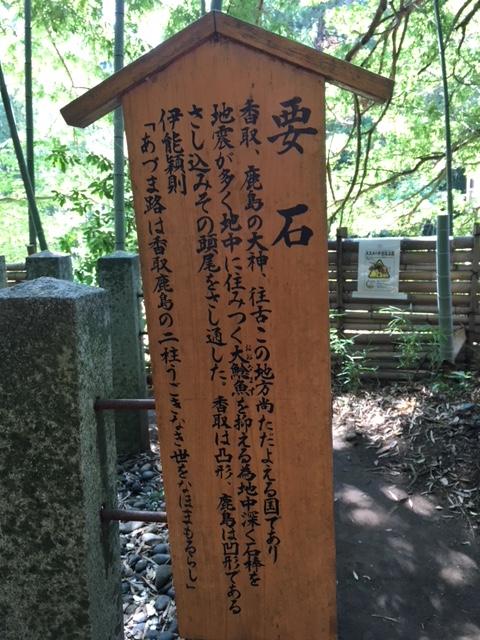 要石
香取、鹿島の大神、往古この地方尚ただよえる国であり
地震が多く地中に住みつく大鯰魚を抑える為地中深く石棒を
おおなまず
さし込みその頭尾をさし通した、香取は凸形、鹿島は凹形である
伊能穎則
「あづま路は香取鹿島の二柱うごきなき世をなほまもるらし」